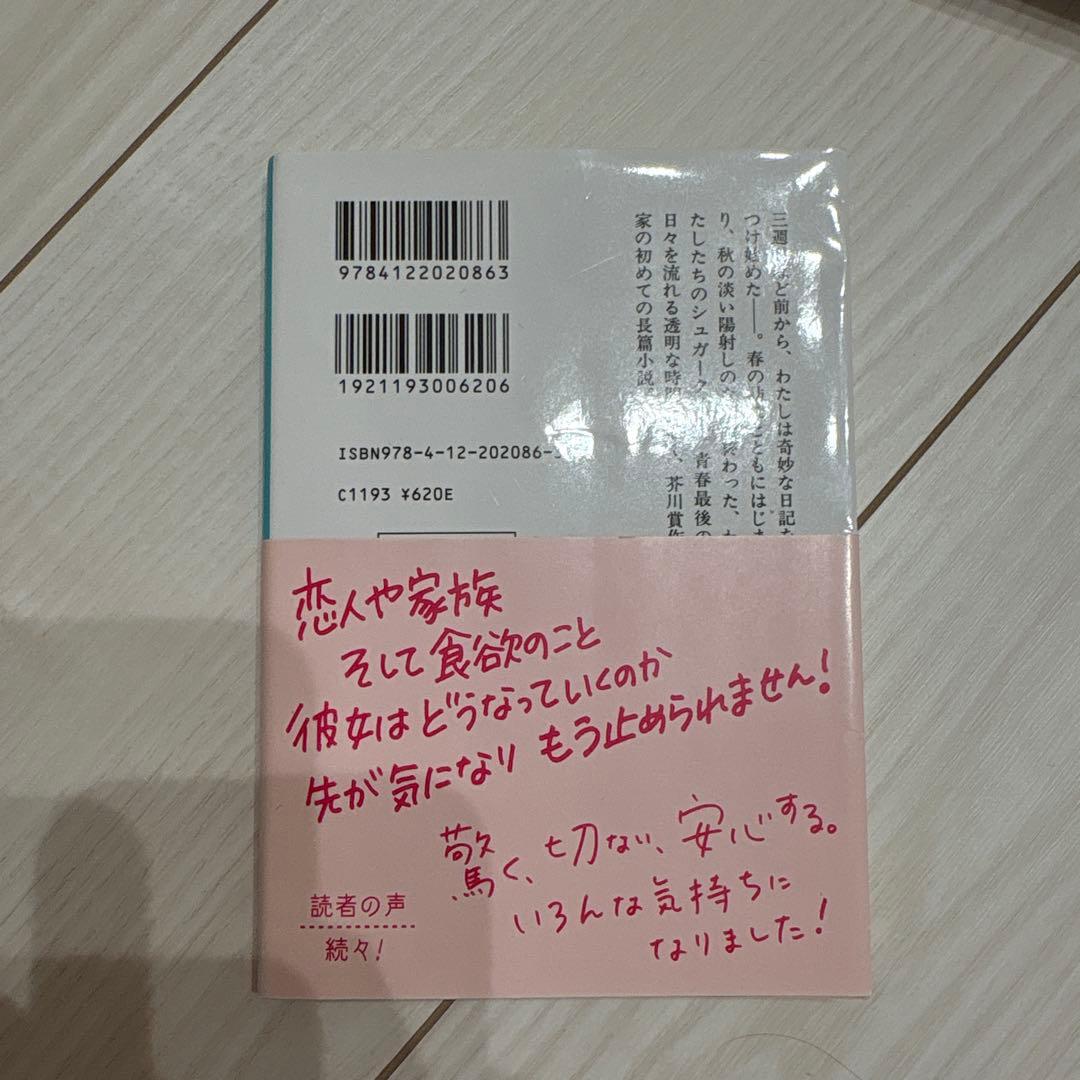 9784122020863
1921193006206
ISBN978-4-12-202086-
C1193 ¥620E
三週 ど前から、わたしは奇妙な日記を
つけ始めた——。春の とともにはじま
り、秋の淡い陽射しのな 終わった、わ
たしたちのシュガー 青春最後の
日々を流れる透明な時間 、芥川賞作
家の初めての長篇小説。
恋人や家族
そして食欲のこと
彼女はどうなっていくのか
先が気になり もう止められません!
驚く、切ない、安心する。
いろんな気持ちに
なりました!
読者の声
続々!